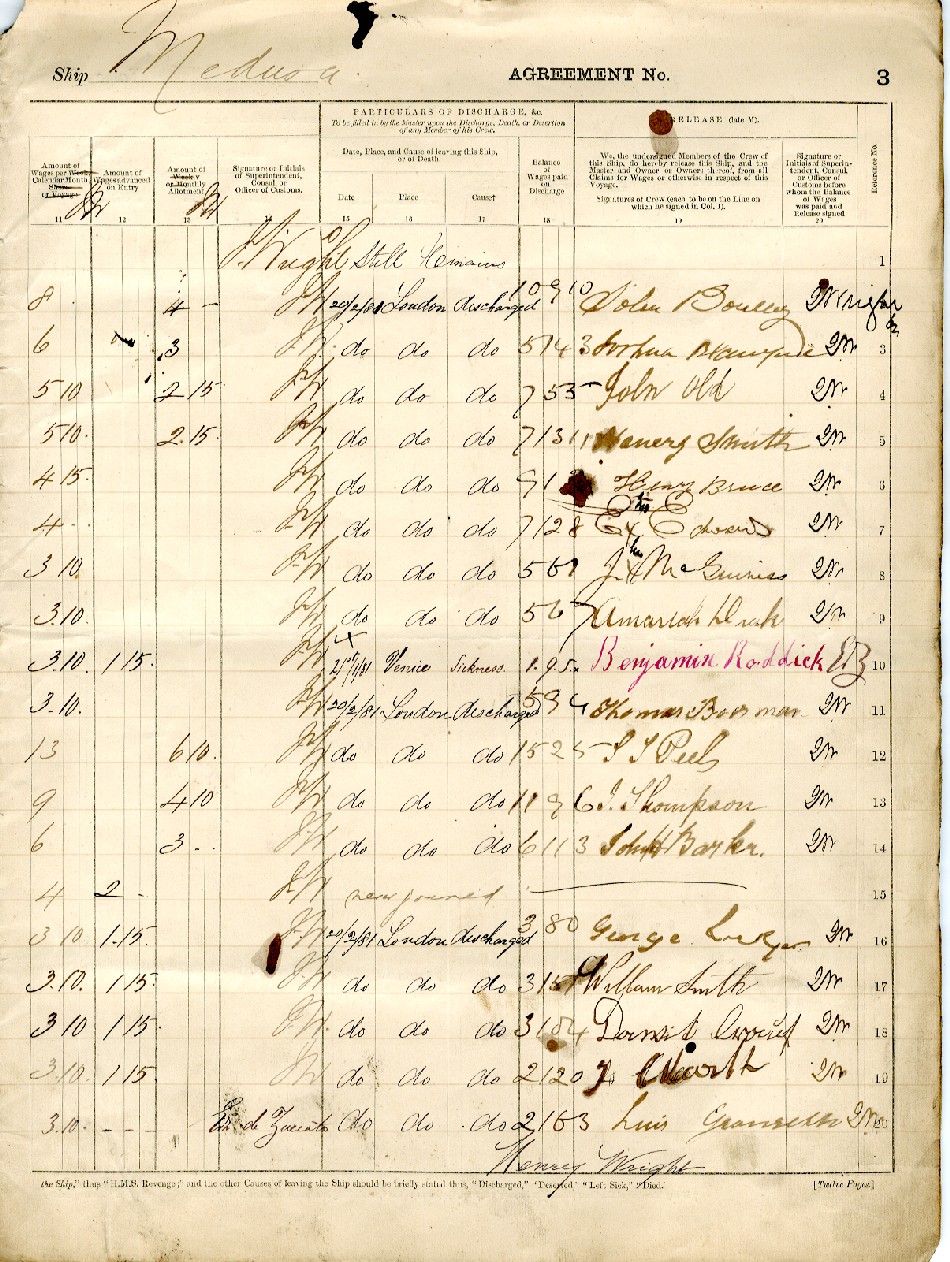 Ship Medusa AGREEMENT No. 3
PARTICULARS OF DISCHARGE, &c.
To be filled in by the Master upon the Discharge, Death, or Desertion
of any Member of his Crew.
RELEASE (late V).
Amount of
Wages per Week
Calendar Month
Share
or Voyage
11
Amount of
Wages advanced
on Entry
12
Amount of
Weekly
or Monthly
Allotment
13
Signature or Initials
of Superintendent,
Consul, or
Officer of Customs.
Date, Place, and Cause of leaving this Ship,
or of Death
Date
15
Place
16
Cause†
17
Balance
of
Wages paid
on
Discharge
18
We, the undersigned Members of the Crew of
this Ship, do hereby release this Ship, and the
Master and Owner or Owners thereof, from all
Claims for Wages or otherwise in respect of this
Voyage.
Signatures of Crew (each to be on the Line on
which he signed in Col. 1).
19
Signature or
Initials of Superin-
tendent, Consul
or Officer of
Customs before
whom the Balance
of Wages
was paid and
Release signed
20
Reference No.
Wright Still Remains 1
8 4 - 20/2/81 London discharged 10 9 10 John
6 3 do do do 5 14 3 Joshua 3
5 10 2 15 do do do 7 5 5 John Old 4
5 10. 2 15. do do do 7 13 11 Henery Smith 5
4 15. do do do 9 1 Henry Bruce 6
4 do do do 7 12 8 his 7
3 10 do do do 5 6 his J. x McGuiness 8
3.10. do do do 5 6 7 Amariah Drak 9
3.10. 1 15. Venice Sickness. 1.9.5. Benjamin Roddick 10
3.10. 20/2/81 London discharged 5 9 4 Thomas Boorman 11
13 6 10. do do do 15 2 5 Peel 12
9 4 10 do do do 11 9 6 J. Thompson 13
6 3 - do do do 6 11 3 John H Barker. 14
4 2 - never joined 15
3 10 1.15. 20/2/81 London discharged 3 8 0 George 16
3.10. 1 15. do do do 3 15 William Smith 17
3 10 1 15. do do do 3 18
3.10. 1 15. do do do 2 12 0 19
3.10. - - - do do do 2 Luis 20
Henry Wright
the Ship," thus "H.M.S. Revenge;" and the other Causes of leaving the Ship should be briefly stated thus, "Discharged," "Deserted" "Left Sick," "Died."